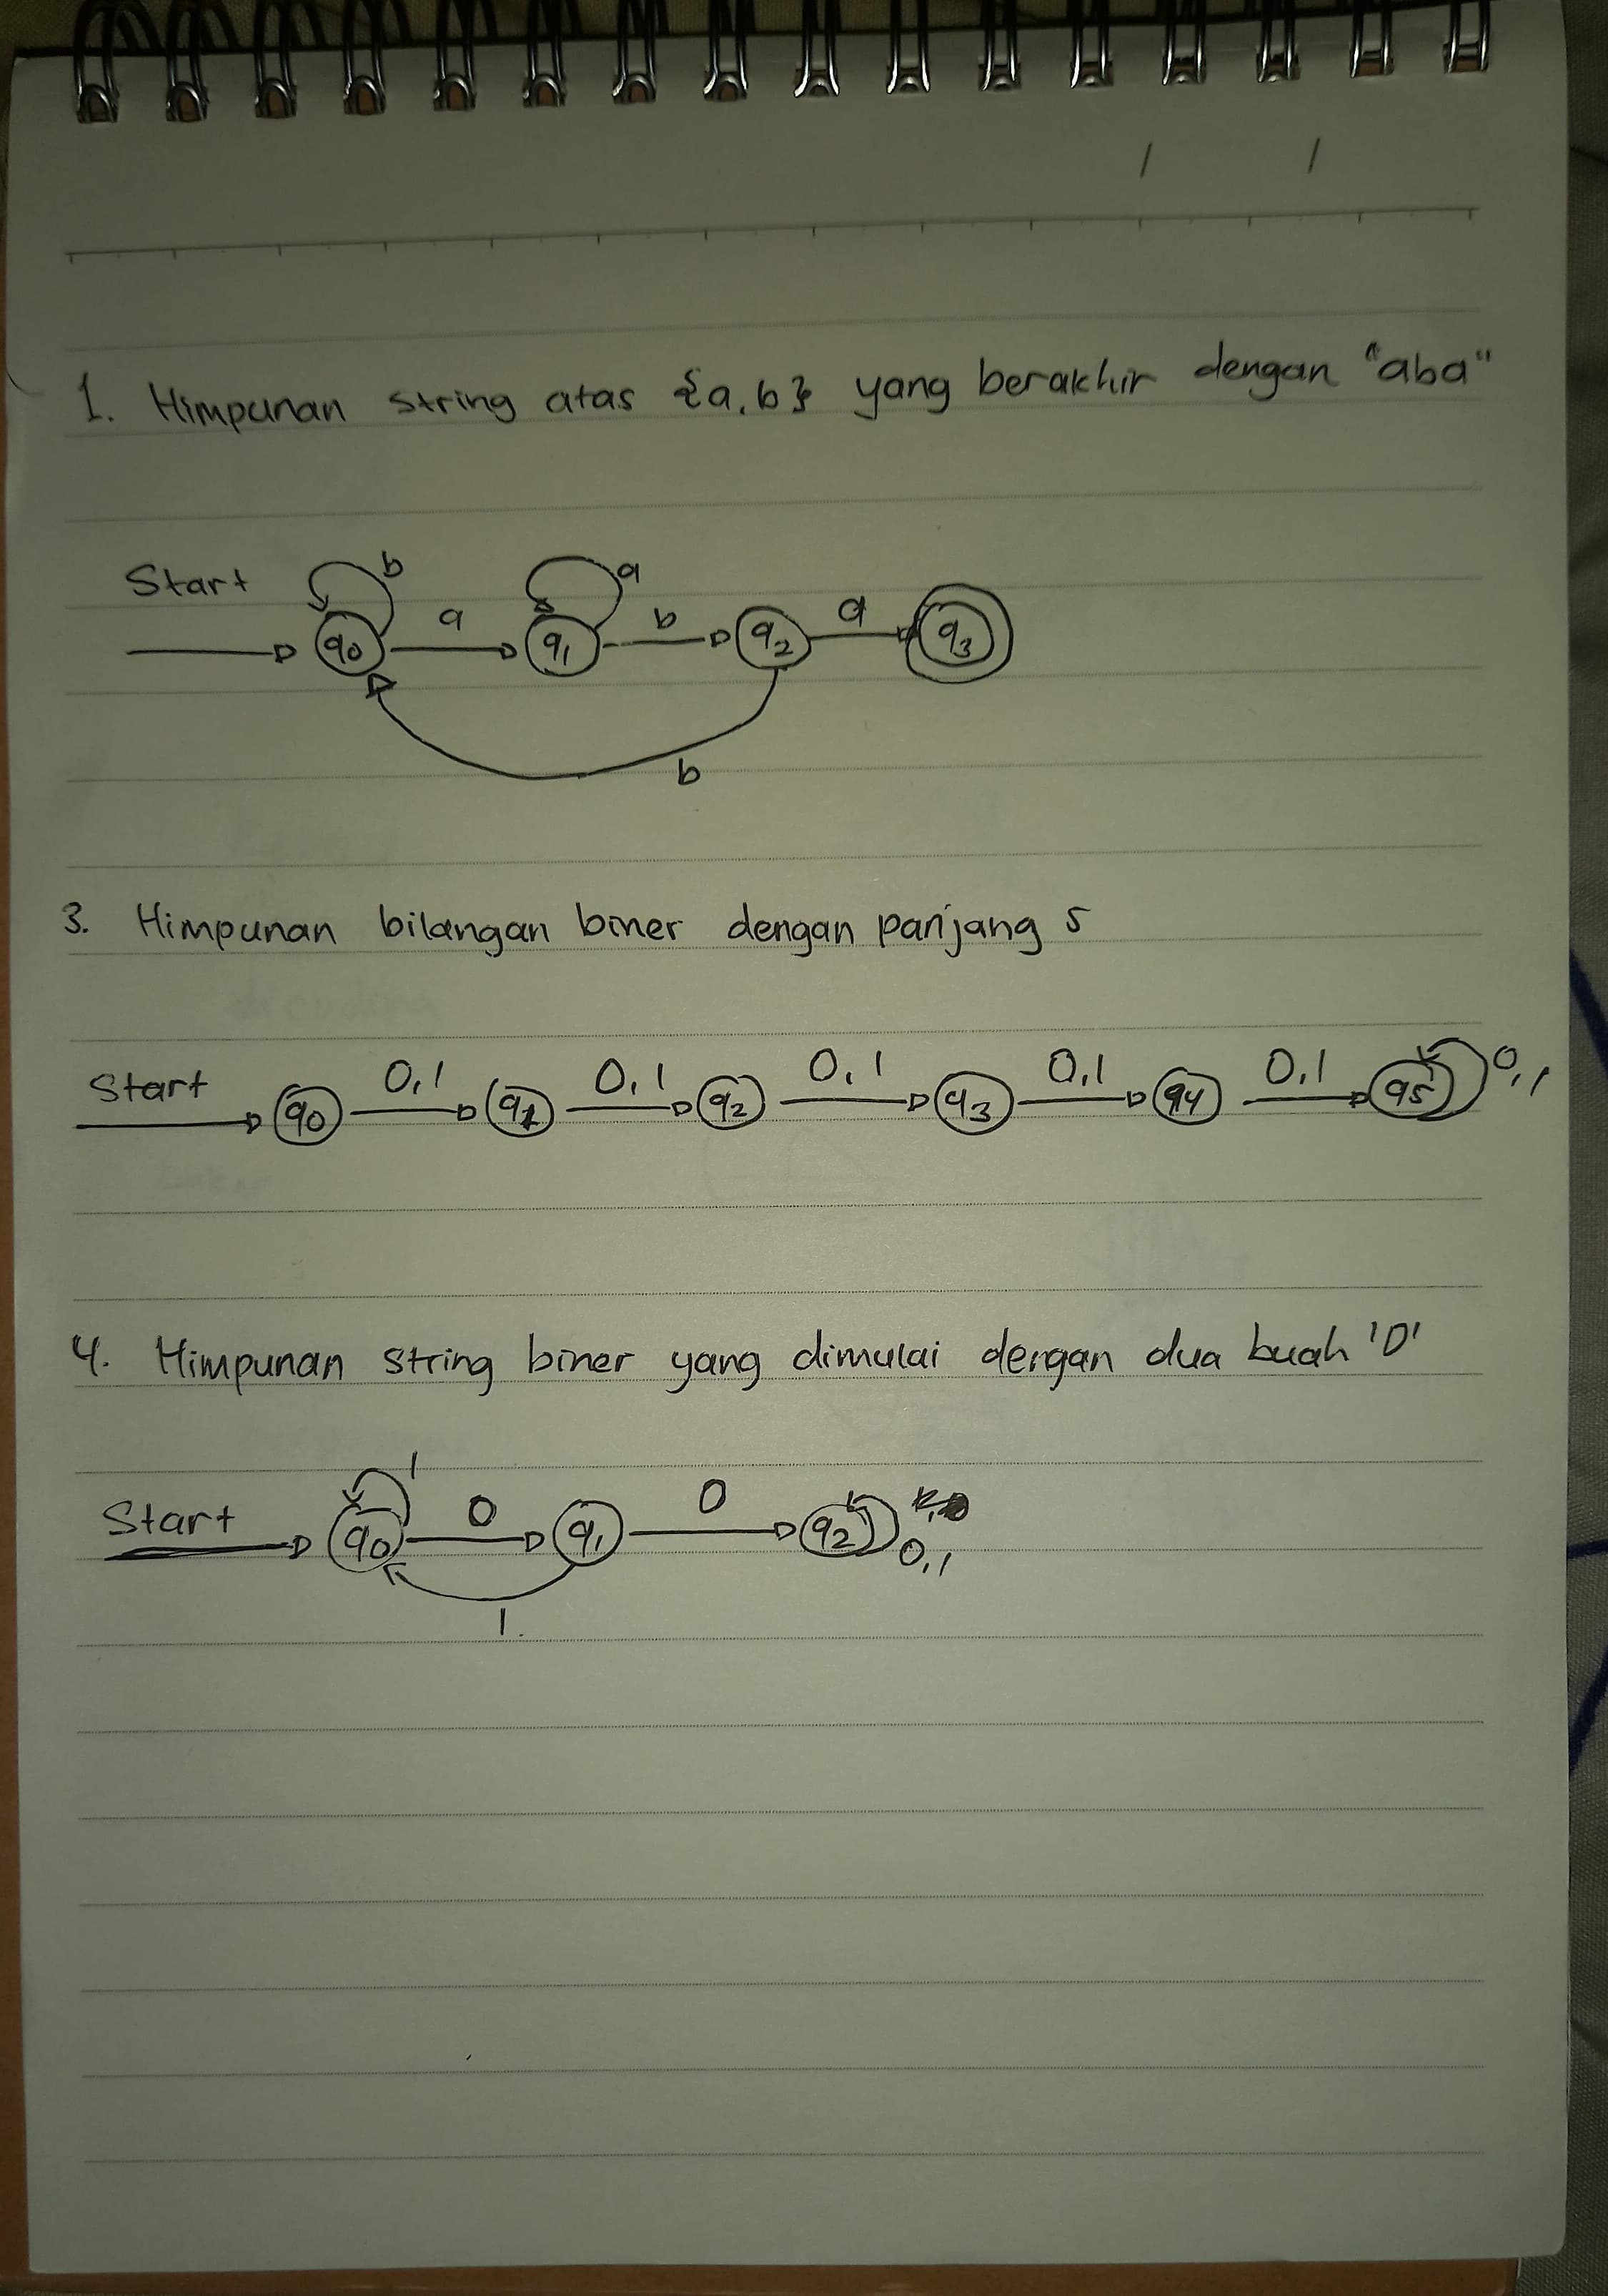 1. Himpunan string atas {a, b} yang berakhir dengan "aba"
Start b a a b a
q0 q1 q2 q3
b
3. Himpunan bilangan biner dengan panjang 5
Start 0,1 0,1 0,1 0,1 0,1 0,1
q0 q1 q2 q3 q4 q5
4. Himpunan string biner yang dimulai dengan dua buah '0'
Start 1 0 0
q0 q1 q2 0,1
1.